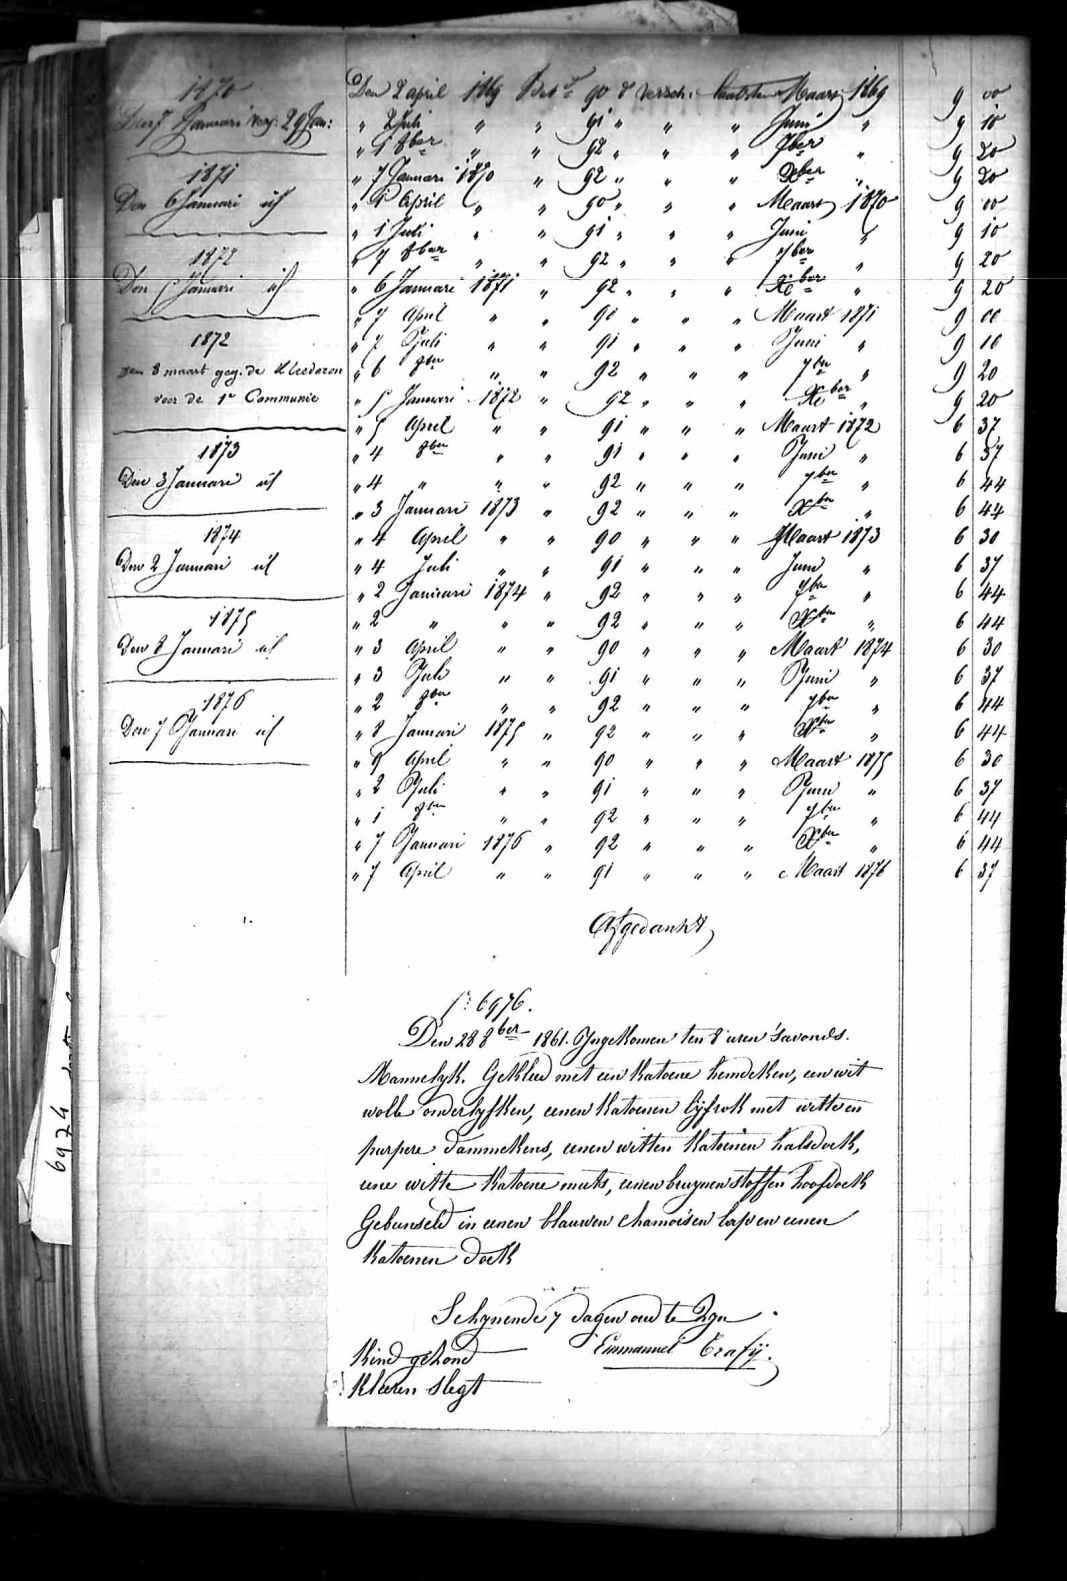 1870
Januari 29 Jan:
1871
Den 6 Januari id
1872
Den 5 Januari id
1872
Den 8 maart geg. de Kleederen
voor de 1e Communie
1873
Den 3 Januari id
1874
Den 2 Januari id
1875
Den 8 Januari id
1876
Den 7 Januari id
Den 2 april 1869 90 d versch. laatsten Maart 1869 9 00
" 2 Juli " " 91 " " " Juni " 9 10
" 1 8ber " " 92 " " " 7ber " 9 20
" 7 Januari 1870 " 92 " " " Xber " 9 20
" 1 April " " 90 " " " Maart 1870 9 00
" 1 Juli " " 91 " " " Juni " 9 10
" 7 8ber " " 92 " " " 7ber " 9 20
" 6 Januari 1871 " 92 " " " Xber " 9 20
" 7 April " " 90 " " " Maart 1871 9 00
" 7 Juli " " 91 " " " Juni " 9 10
" 6 8ber " " 92 " " " 7ber " 9 20
" 5 Januari 1872 " 92 " " " Xber " 9 20
" 5 April " " 91 " " " Maart 1872 6 37
" 4 8ber " " 91 " " " Juni " 6 37
" 4 " " " 92 " " " 7ber " 6 44
" 3 Januari 1873 " 92 " " " Xber " 6 44
" 4 April " " 90 " " " Maart 1873 6 30
" 4 Juli " " 91 " " " Juni " 6 37
" 2 Januari 1874 " 92 " " " 7ber " 6 44
" 2 " " " 92 " " " Xber " 6 44
" 3 April " " 90 " " " Maart 1874 6 30
" 3 Juli " " 91 " " " Juni " 6 37
" 2 8ber " " 92 " " " 7ber " 6 44
" 8 Januari 1875 " 92 " " " Xber " 6 44
" 9 April " " 90 " " " Maart 1875 6 30
" 2 Juli " " 91 " " " Juni " 6 37
" 1 8ber " " 92 " " " 7ber " 6 44
" 7 Januari 1876 " 92 " " " Xber " 6 44
" 7 April " " 91 " " " Maart 1876 6 37
Afgedankt
6976.
Den 28 8ber 1861. Ingekomen ten 8 uren 'savonds.
Mannelyk. Gekleed met een katoene hemdeken, een wit
wolle onderlyfken, eenen katoenen lyfrok met witte en
purpere dammekens, eenen witten katoenen halsdoek,
eene witte katoene muts, eenen bruynen stoffen hoofdoek
Gebunseld in eenen blauwen chamoisen lap en eenen
katoenen doek
Schynende 7 dagen oud te Zyn
Emmanuel Erafij.
Kind gezond
Kleeren slegt
6974